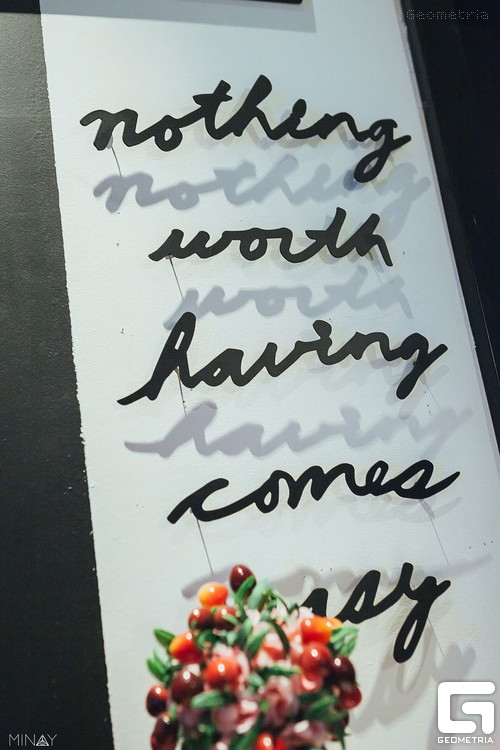 Geometria
nothing
worth
having
comes
asy
MINAY
G
GEOMETRIA